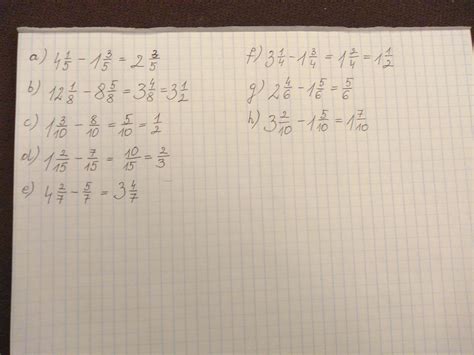 a) 4 1/5 - 1 3/5 = 2 3/5
b) 12 1/8 - 8 5/8 = 3 4/8 = 3 1/2
c) 1 3/10 - 8/10 = 5/10 = 1/2
d) 1 2/15 - 7/15 = 10/15 = 2/3
e) 4 2/7 - 5/7 = 3 4/7
f) 3 1/4 - 1 3/4 = 1 2/4 = 1 1/2
g) 2 4/6 - 1 5/6 = 5/6
h) 3 2/10 - 1 5/10 = 1 7/10